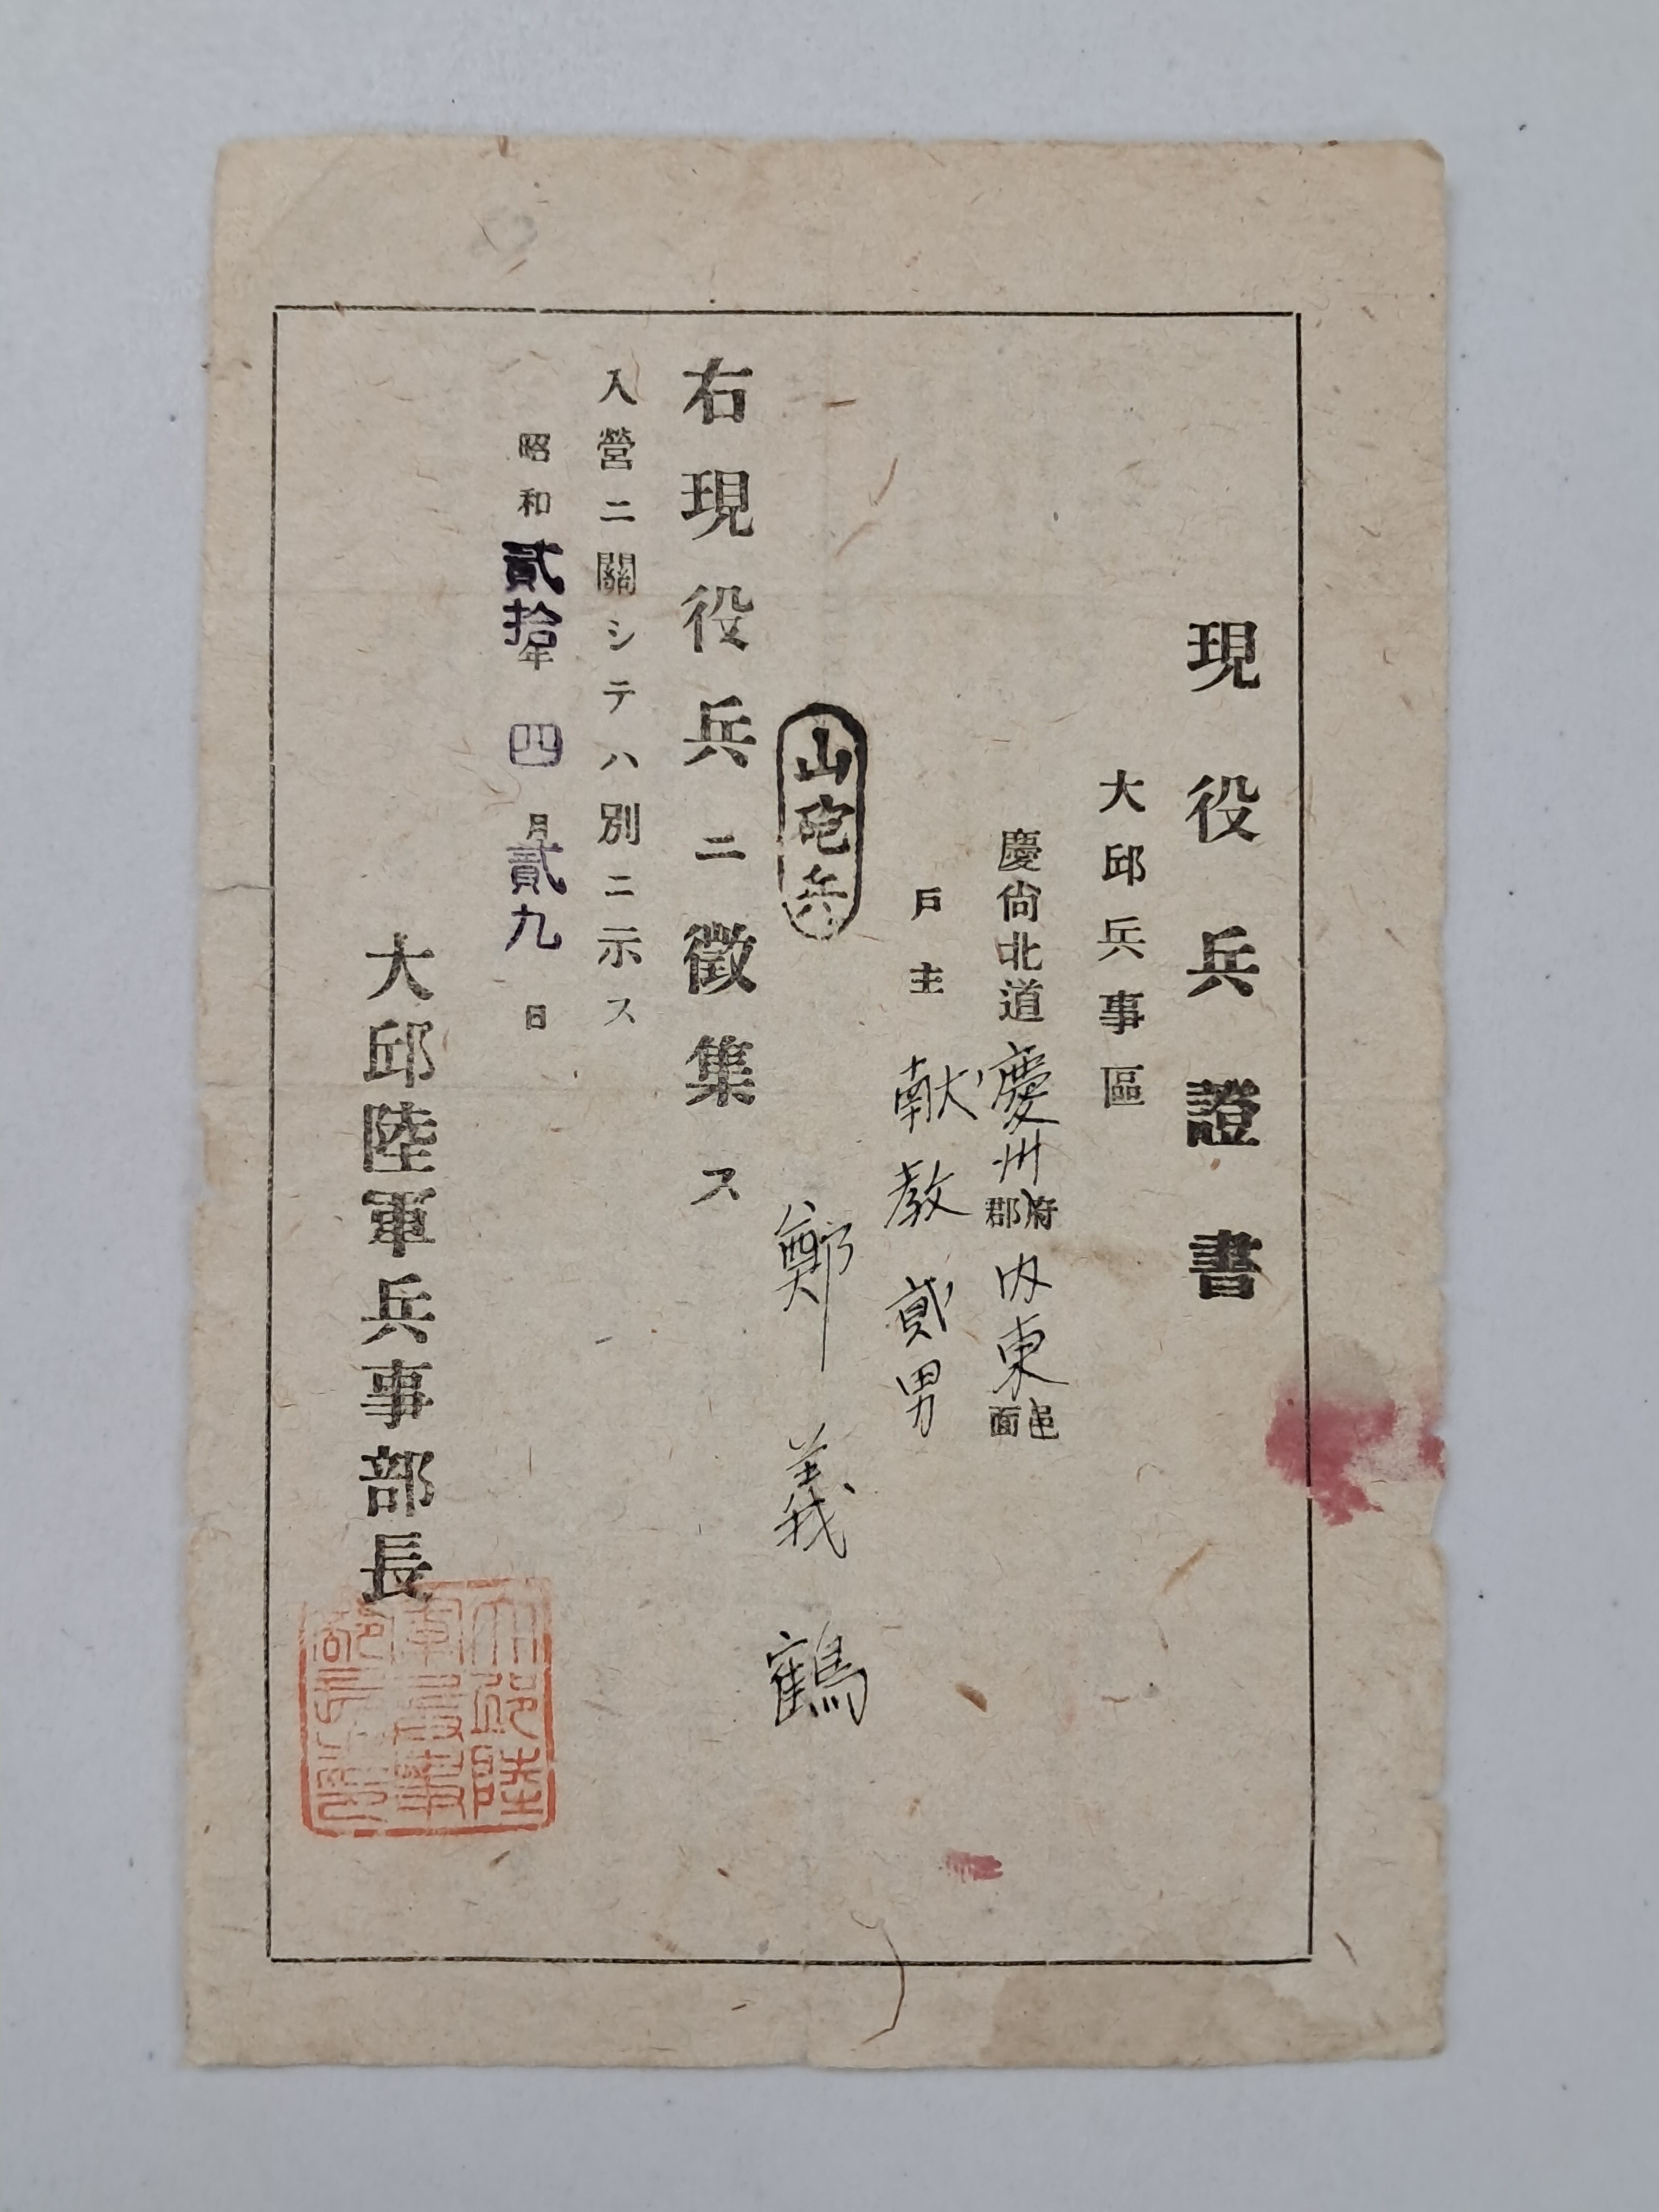 現役兵證書
大邱兵事區
慶尙北道慶州府郡内東邑面
戶主 献教 貳男
山砲兵 鄭義鶴
右現役兵ニ徵集ス
入營ニ關シテハ別ニ示ス
昭和貳拾年四月貳九日
大邱陸軍兵事部長
大邱陸
軍兵事
部長之印